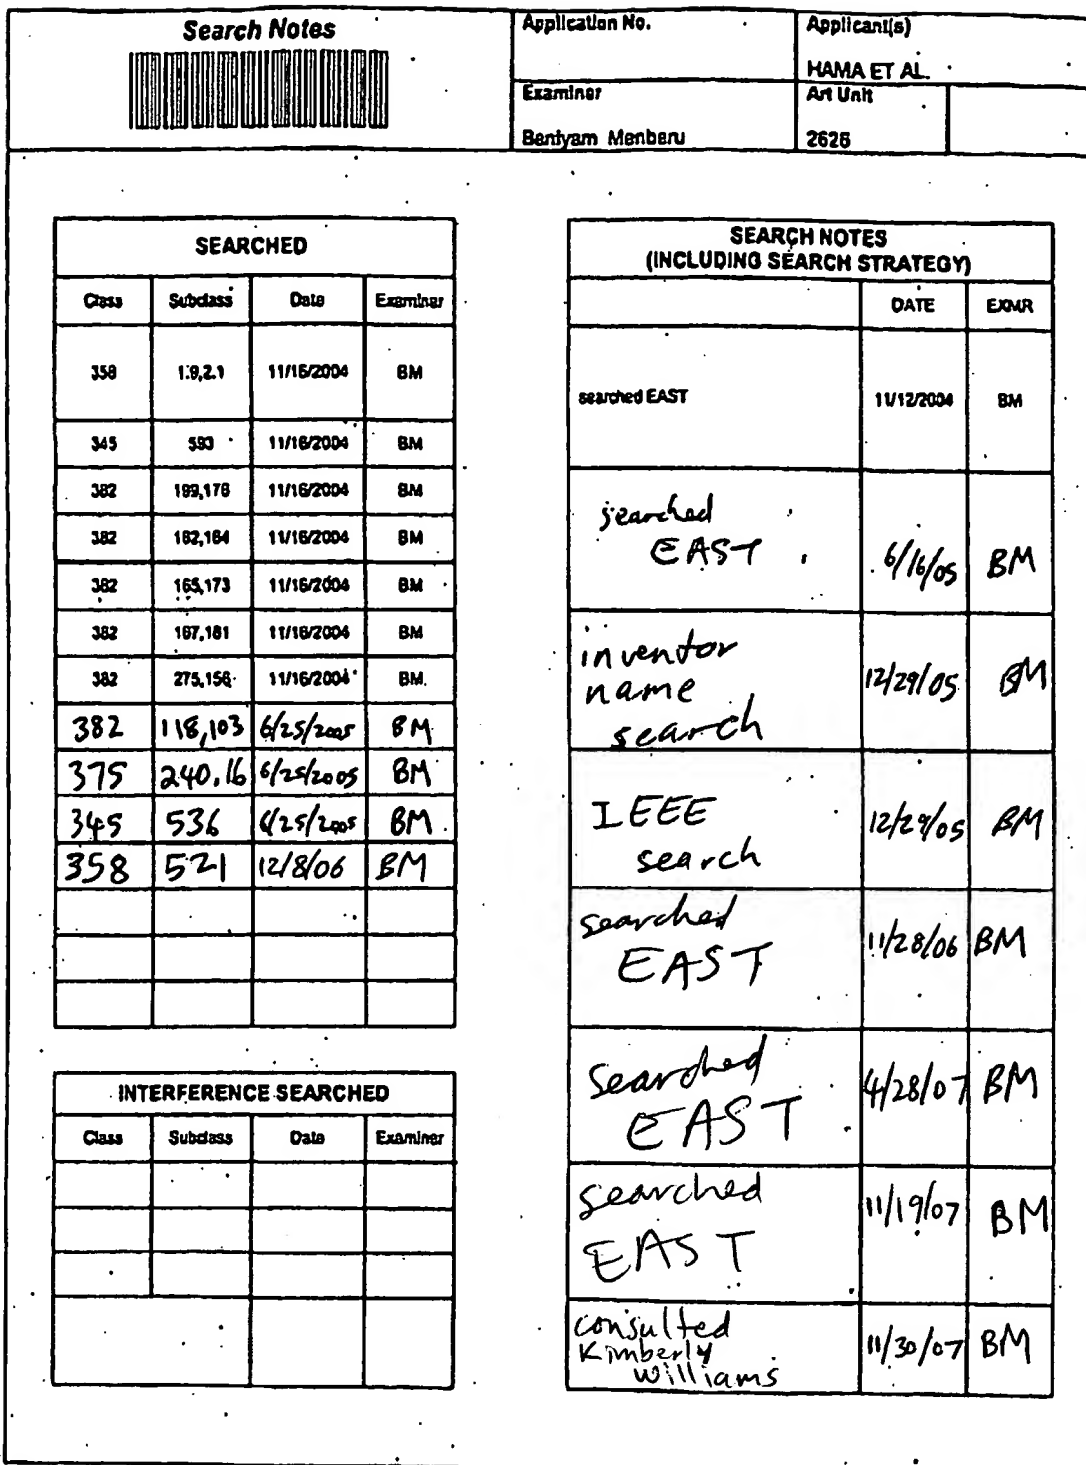 Search Notes
Application No.
Applicant(s)
HAMA ET AL.
Examiner
Art Unit
Beniyam Menberu
2626
SEARCHED
Class Subclass Date Examiner
358 1.9,2.1 11/16/2004 BM
345 593 11/16/2004 BM
382 199,176 11/16/2004 BM
382 162,164 11/16/2004 BM
382 165,173 11/16/2004 BM
382 167,181 11/16/2004 BM
382 275,156 11/16/2004 BM
382 118,103 6/25/2005 BM
375 240.16 6/25/2005 BM
345 536 6/25/2005 BM
358 521 12/8/06 BM
INTERFERENCE SEARCHED
Class Subclass Date Examiner
SEARCH NOTES
(INCLUDING SEARCH STRATEGY)
DATE EXMR
searched EAST 11/12/2004 BM
searched
EAST 6/16/05 BM
inventor
name 12/29/05 BM
search
IEEE 12/29/05 BM
search
searched
EAST 11/28/06 BM
searched 4/28/07 BM
EAST
searched 11/19/07 BM
EAST
consulted
Kimberly 11/30/07 BM
Williams